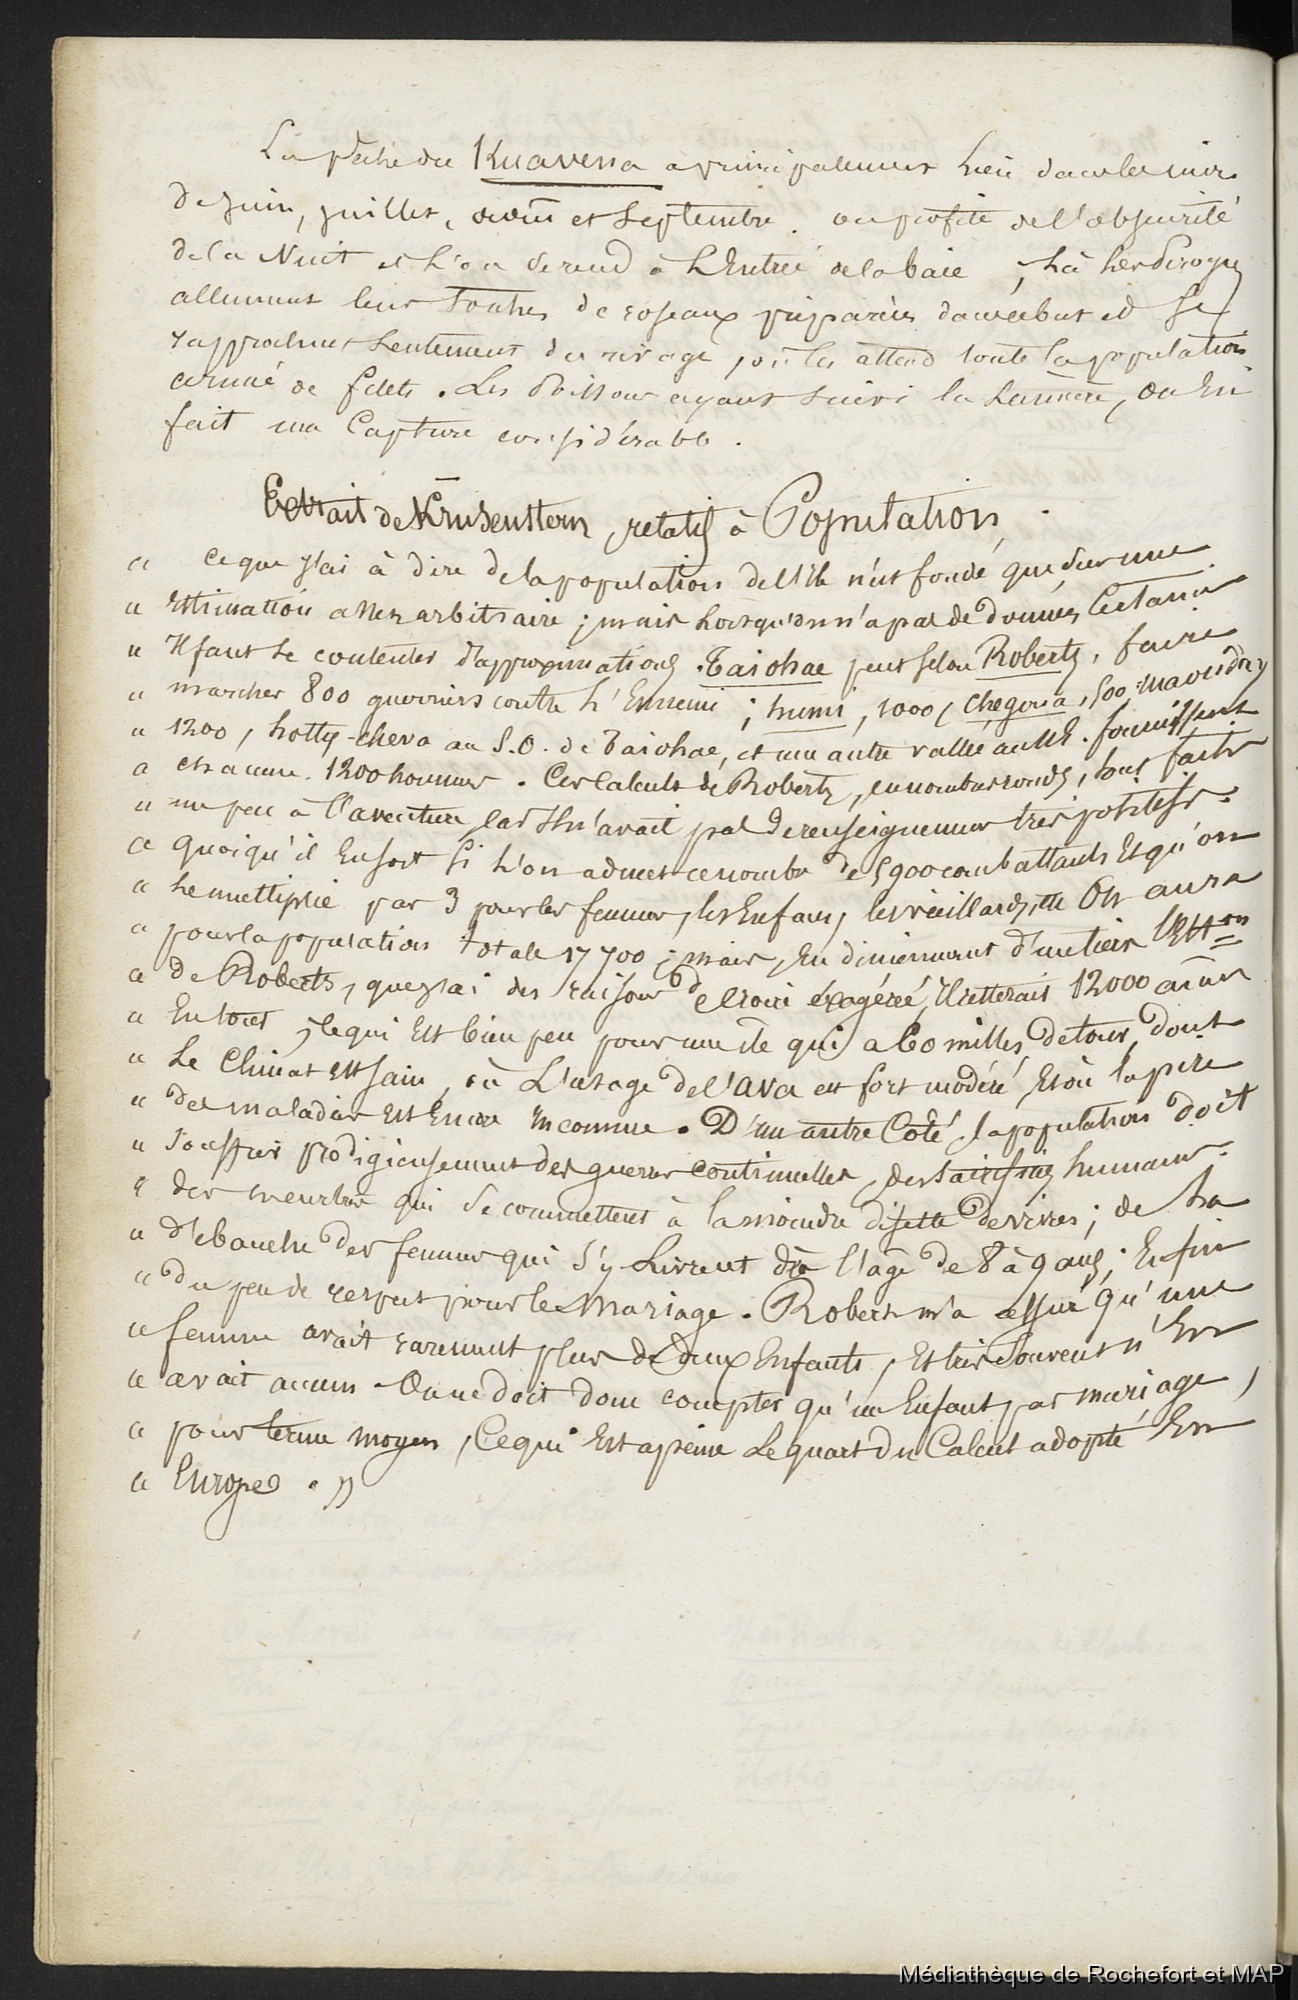 La pêche du Kuavena a principalement lieu dans les mois
de juin, juillet, août et Septembre. on profite de l'obscurité
de la Nuit et l'on se rend à l'Entrée de la baie, là les Pirogues
allument leurs Torches de roseaux préparées dans ce but et se
rapprochent Lentement du rivage, où les attend toute la population
armée de filets. Les Poissons ayant suivi la Lumière, on En
fait une Capture considérable.
Extrait de Krusenstern, relatif à Population.
" Ce que j'ai à dire de la population de l'île n'est fondé que sur une
" Estimation assez arbitraire; mais lorsqu'on n'a pas de données Certaines
" Il faut se contenter d'approximations. Taiohae peut selon Roberts, faire
" marcher 800 guerriers contre l'Ennemi; humi, 1000, Chegoua, 500
" 1200, hotty-cheva au S.O. de Taiohae, et une autre vallée au N.E. fournissent
" chacune 1200 hommes. Ces Calculs de Roberts, en nombres ronds, sont faits
" un peu à l'aventure, car Il n'avait pas de renseignements très positifs.
" Quoiqu'il En soit si l'on admet ce nombre de 5900 combattants Et qu'on
" le multiplie par 3 pour les femmes, les Enfans, les vieillards, etc On aura
" pour la population totale 17700; mais, En diminuant d'un tiers l'Est.on
" de Roberts, que j'ai des raisons de croire éxagérée, Il resterait 12000 âmes
" En tout, ce qui Est bien peu pour une île qui a 60 milles de tour, dont
" Le Climat est sain, où L'usage de l'ava est fort modéré, Et où la pire
" des maladies est Encore Inconnue. D'un autre Coté, la population doit
" Souffrir prodigieusement des guerres continuelles, des sacrifices humains.
" des meurtres qui Se commettent à la moindre disette de vivres; de La
" d'ébauche des femmes qui S'y Livrent dès l'âge de 8 à 9 ans; Enfin
" du peu de respect pour le mariage. Roberts m'a assuré qu'une
" femme avait rarement plus de deux Enfants, Et très Souvent n'En
" avait aucun. On ne doit donc compter qu'un Enfant par mariage,
" pour terme moyen, Ce qui Est à peine Le quart du Calcul adopté En
" Europe. "
Médiathèque de Rochefort et MAP